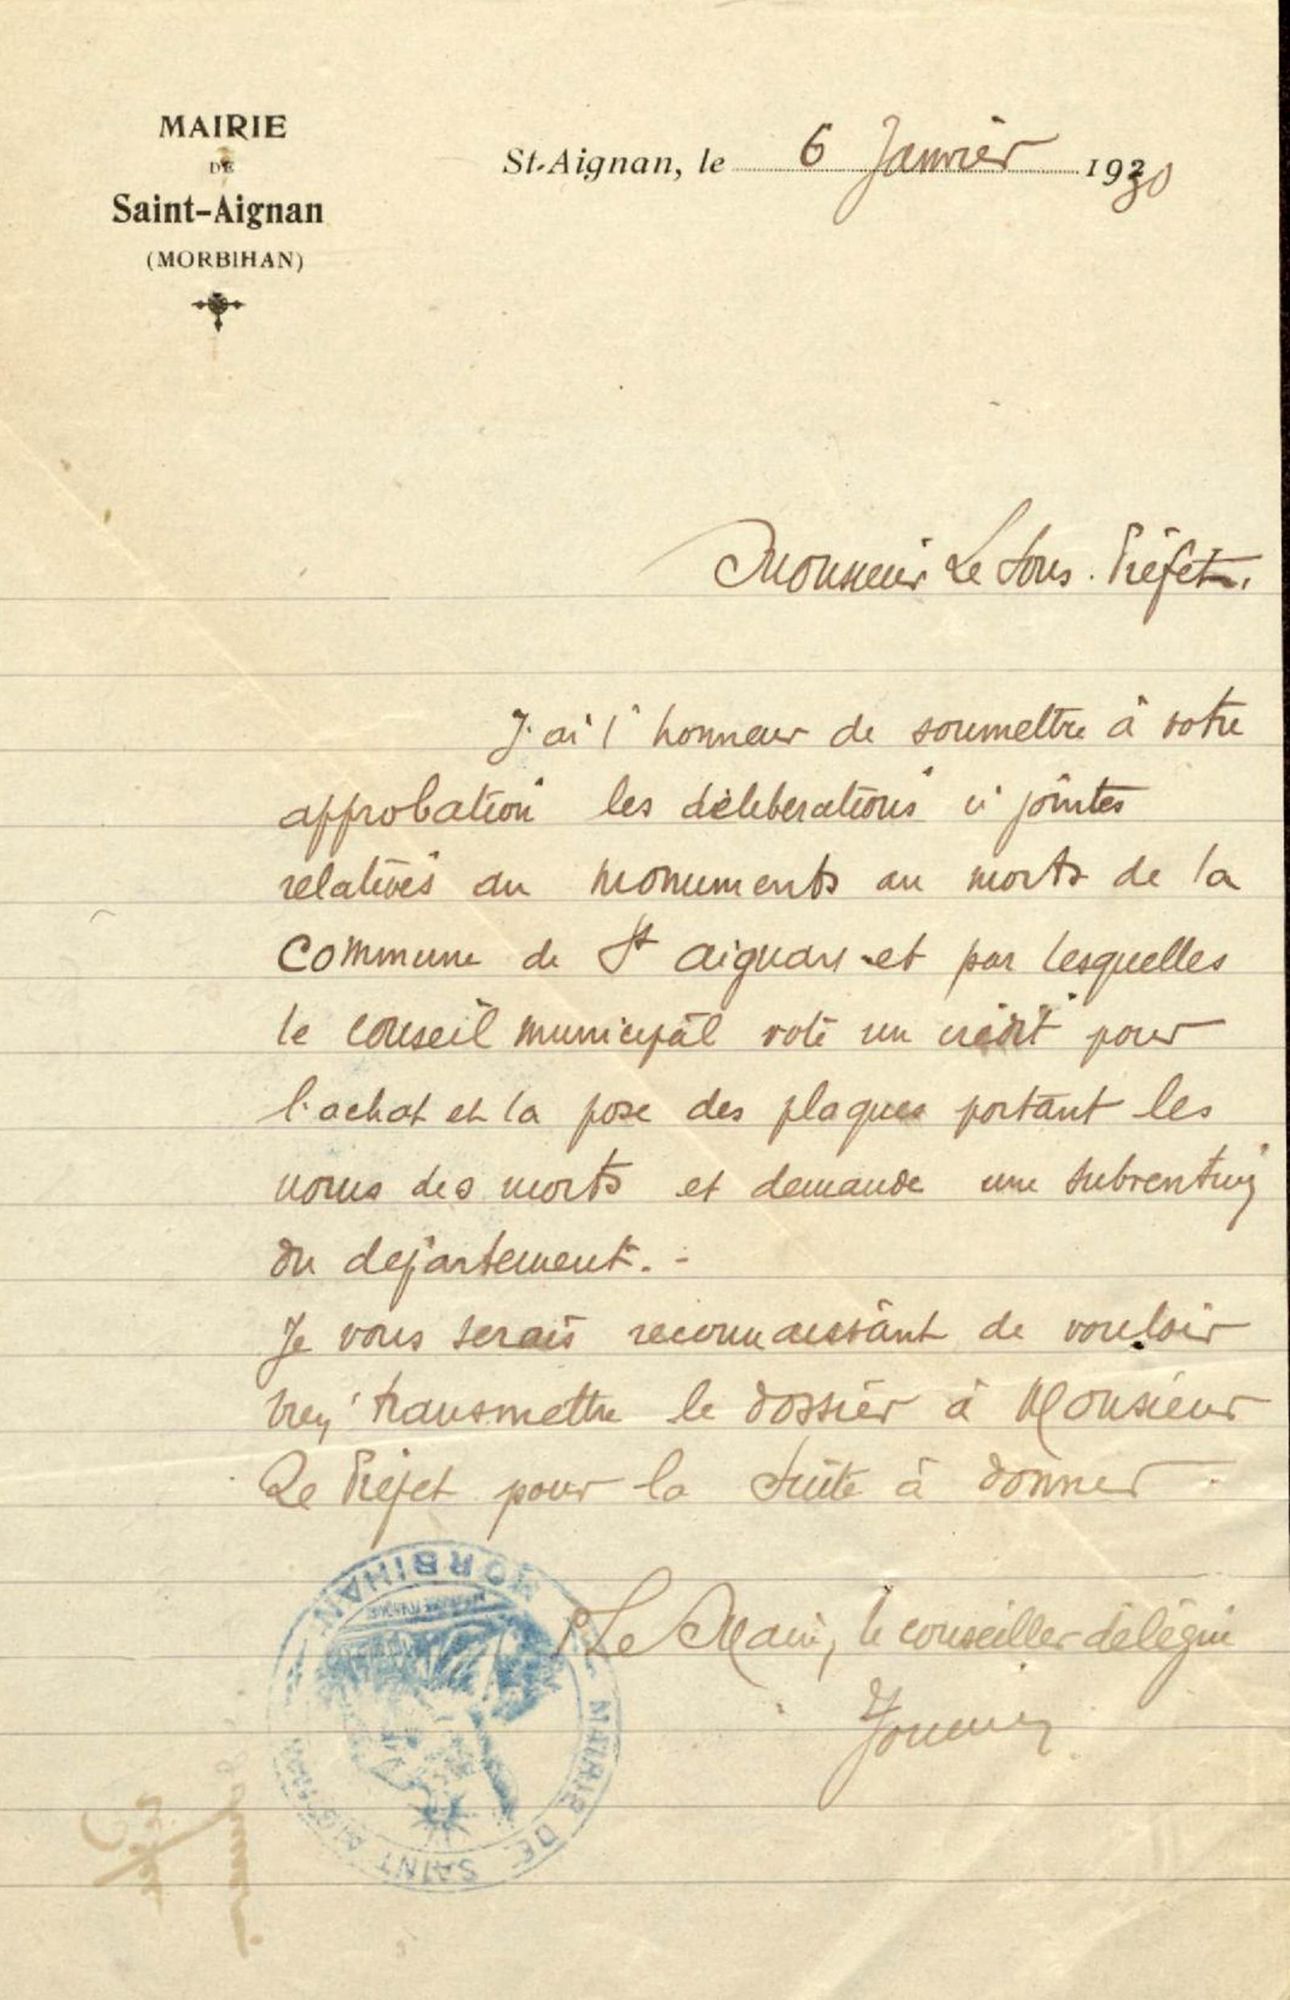 MAIRIE
DE
Saint-Aignan
(MORBIHAN)
St-Aignan, le 6 Janvier 1930
Monsieur Le Sous-Préfet.
J'ai l'honneur de soumettre à votre
approbation les délibérations ci jointes
relatives au monuments au morts de la
Commune de St Aignan et par lesquelles
le conseil municipal vote un crédit pour
l'achat et la pose des plaques portant les
noms des morts et demande une subvention
du département. -
Je vous serais reconnaissant de vouloir
bien transmettre le dossier à Monsieur
Le Préfet pour la suite à donner.
P Le Maire, le conseiller délégué
MAIRIE DE SAINT AIGNAN
MORBIHAN